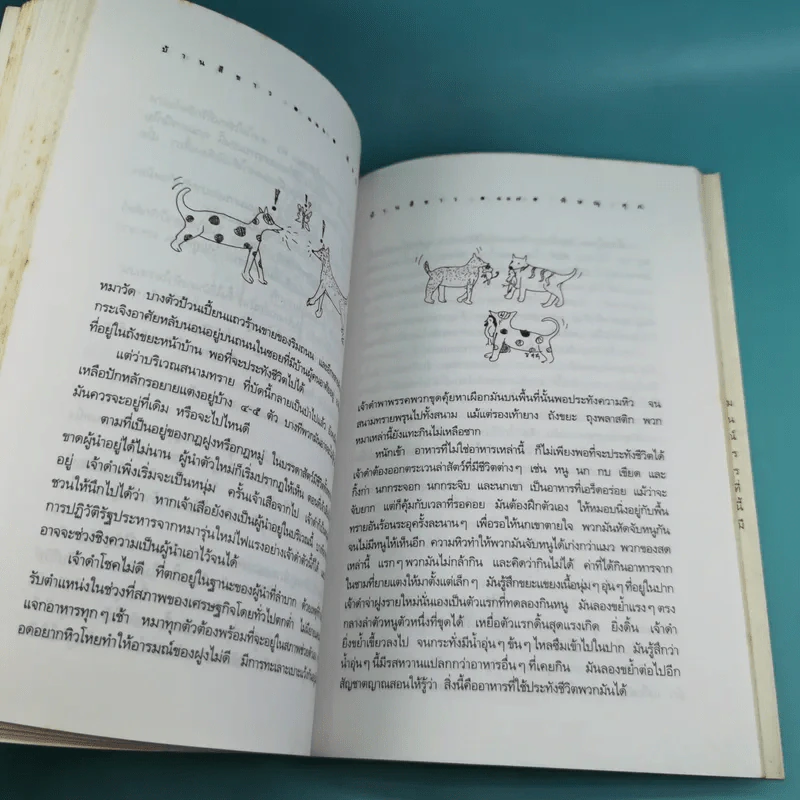 บ้านสีขาว
หมาวัด บางตัวป้วนเปี้ยนแถวร้านขายของริมถนน
กระเจิงอาศัยหลับนอนอยู่บนถนนในซอยที่มีบ้านผู้คน
ที่อยู่ในถังขยะหน้าบ้าน พอที่จะประทังชีวิตไปได้
แต่ว่าบริเวณสนามทราย ที่บัดนี้กลายเป็นป่าไปแล้ว
เหลือปักหลักรอยายแตงอยู่บ้าง ๔-๕ ตัว บางทีพวกมัน
มันควรจะอยู่ที่เดิม หรือจะไปไหนดี
ตามที่เป็นอยู่ของกฎฝูงหรือกฎหมู่ ในบรรดาสัตว์
ขาดผู้นำอยู่ได้ไม่นาน ผู้นำตัวใหม่ก็เริ่มปรากฏให้เห็น
อยู่ เจ้าดำเพิ่งเริ่มจะเป็นหนุ่ม ครั้นเจ้าเสือจากไป
ชวนให้นึกไปได้ว่า หากเจ้าเสือยังคงเป็นผู้นำอยู่ในบริเวณนี้
การปฏิวัติรัฐประหารจากหมารุ่นใหม่ไฟแรงอย่างเจ้าดำตัวนี้ก็ได้
อาจจะช่วงชิงความเป็นผู้นำเอาไว้จนได้
เจ้าดำโชคไม่ดี ที่ตกอยู่ในฐานะของผู้นำที่ลำบาก
รับตำแหน่งในช่วงที่สภาพของเศรษฐกิจโดยทั่วไปตกต่ำ
แจกอาหารทุกๆ เช้า หมาทุกตัวต้องพร้อมที่จะอยู่ในสภาพ
อดอยากหิวโหยทำให้อารมณ์ของฝูงไม่ดี มีการทะเลาะเบาะแว้ง
บ้านสีขาว
เจ้าดำพาพรรคพวกขุดคุ้ยหาเผือกมันบนพื้นที่นั้นพอประทังความหิว จน
สนามทรายพรุนไปทั้งสนาม แม้แต่รองเท้ายาง ถังขยะ ถุงพลาสติก พวก
หมาเหล่านี้ยังแทะกินไม่เหลือซาก
หนักเข้า อาหารที่ไม่ใช่อาหารเหล่านี้ ก็ไม่เพียงพอที่จะประทังชีวิตได้
เจ้าดำต้องออกตระเวนล่าสัตว์ที่มีชีวิตต่างๆ เช่น หนู นก กบ เขียด และ
กิ้งก่า นกกระจอก นกกระจิบ และนกเขา เป็นอาหารที่เอร็ดอร่อย แม้ว่าจะ
จับยาก แต่ก็คุ้มกับเวลาที่รอคอย มันต้องฝึกตัวเอง ให้หมอบนิ่งอยู่กับพื้น
ทรายอันร้อนระอุครั้งละนานๆ เพื่อรอให้นกเขาตายใจ พวกมันหัดจับหนูกิน
จนไม่มีหนูให้เห็นอีก ความหิวทำให้พวกมันจับหนูได้เก่งกว่าแมว พวกของสด
เหล่านี้ แรกๆ พวกมันไม่กล้ากิน และคิดว่ากินไม่ได้ ค่าที่ได้กินอาหารจาก
ในชามที่ยายแตงให้มาตั้งแต่เล็กๆ มันรู้สึกขยะแขยงเนื้อนุ่มๆ อุ่นๆ ที่อยู่ในปาก
เจ้าดำจ่าฝูงรายใหม่นั่นเองเป็นตัวแรกที่ทดลองกินหนู มันลองขย้ำแรงๆ ตรง
กลางลำตัวหนูตัวหนึ่งที่ขุดได้ เหยื่อตัวแรกดิ้นสุดแรงเกิด ยิ่งดิ้น เจ้าดำ
ยิ่งขย้ำเขี้ยวลงไป จนกระทั่งมีน้ำอุ่นๆ ข้นๆ ไหลซึมเข้าไปในปาก มันรู้สึกว่า
น้ำอุ่นๆ นี้มีรสหวานแปลกกว่าอาหารอื่นๆ ที่เคยกิน มันลองขย้ำต่อไปอีก
สัญชาตญาณสอนให้รู้ว่า สิ่งนี้คืออาหารที่ใช้ประทังชีวิตพวกมันได้